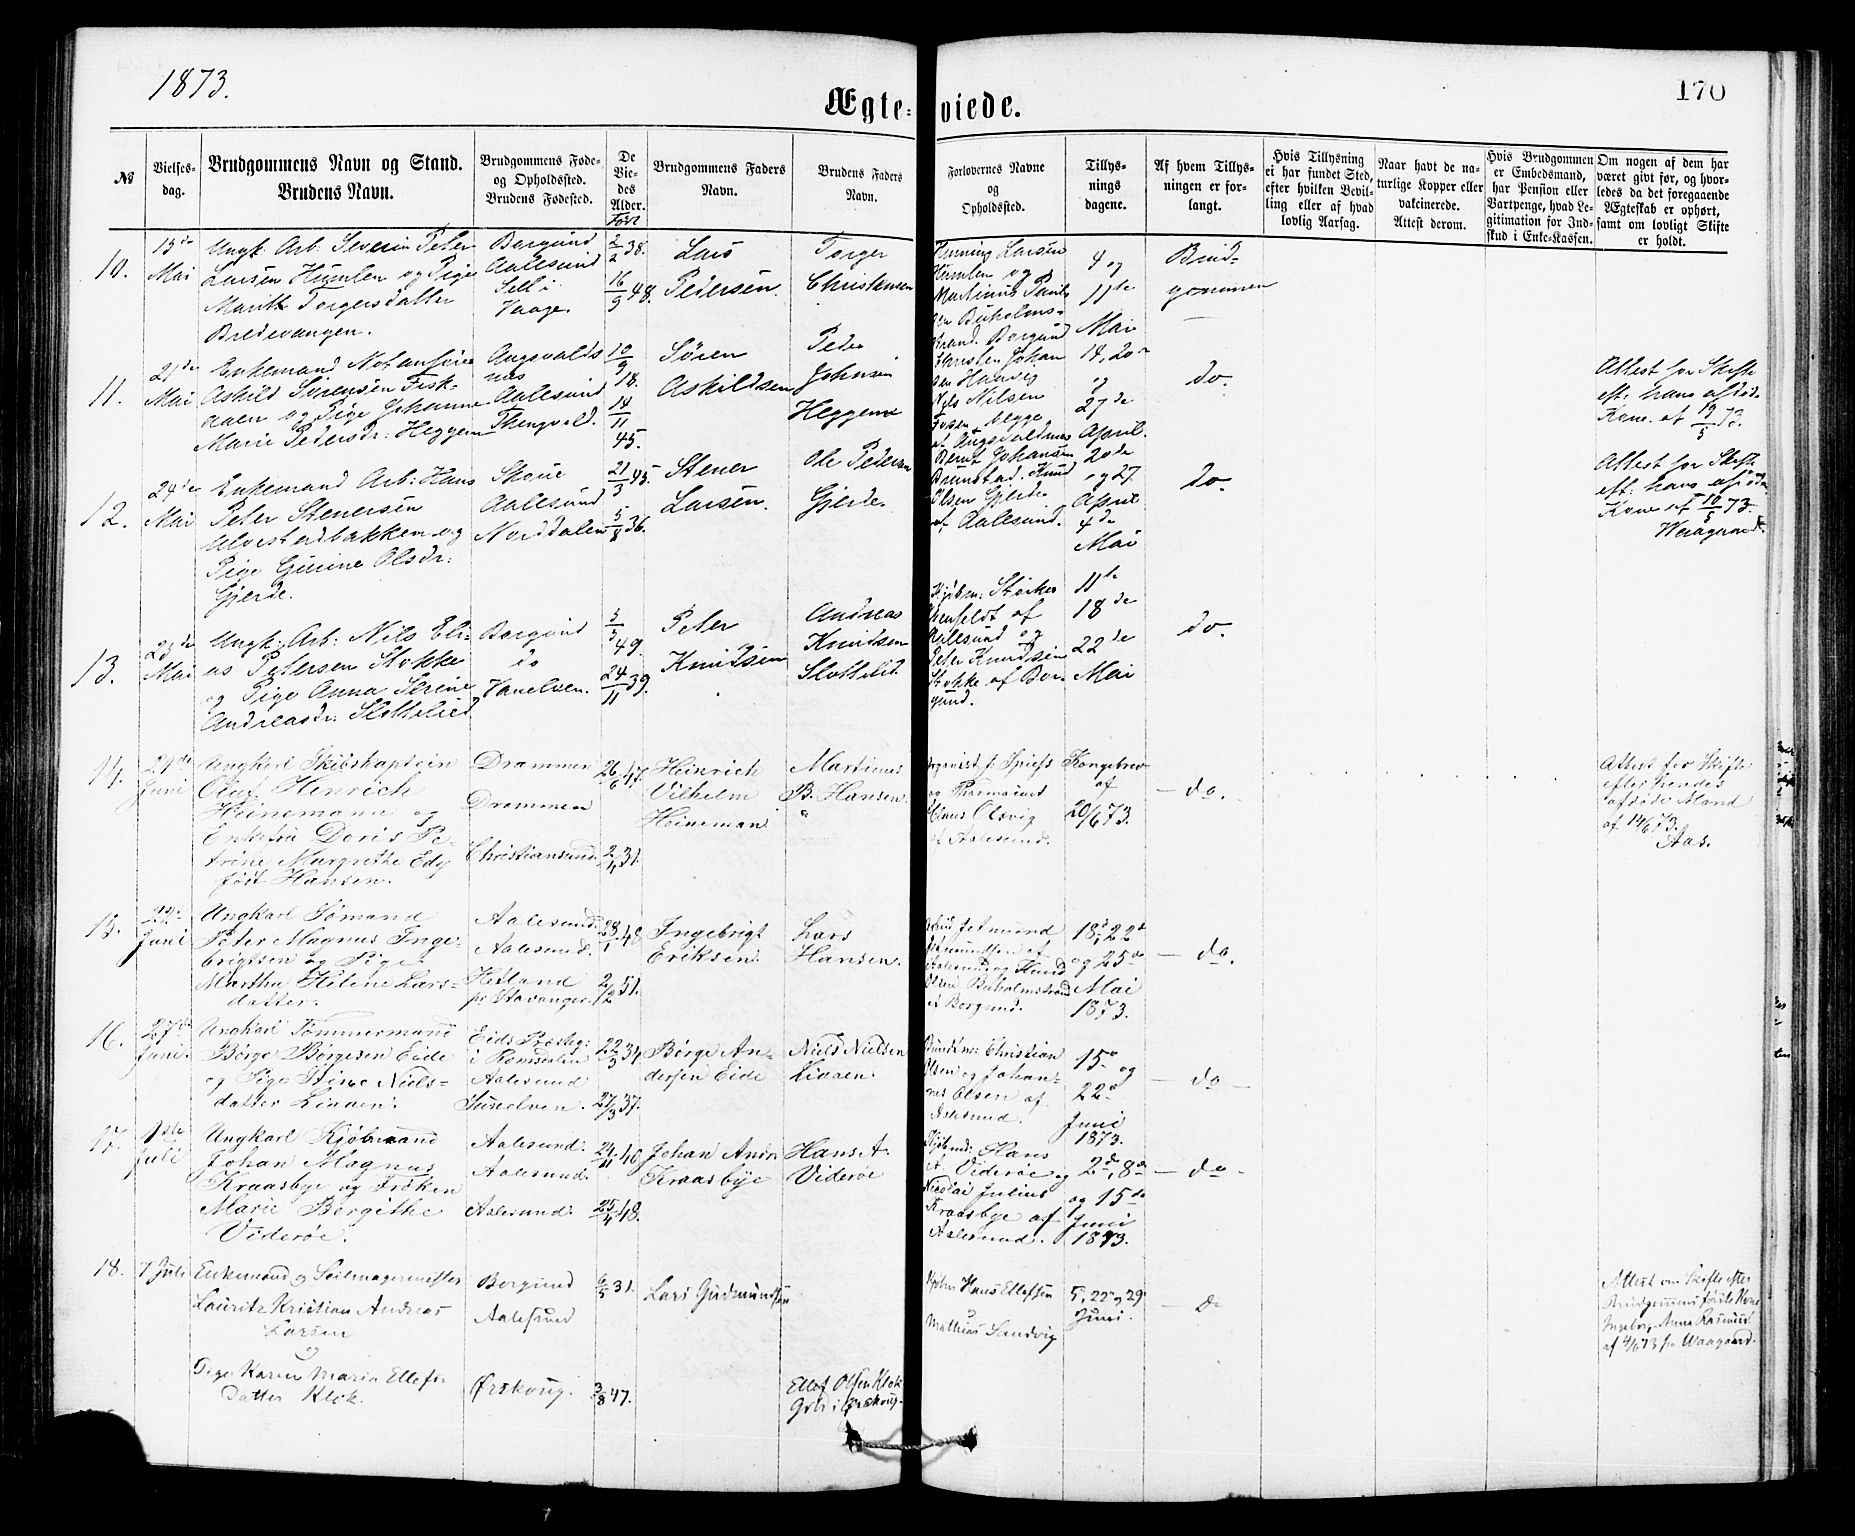 1873.
170
Ægte-viede.
№
Vielses-
dag.
Brudgommens Navn og Stand.
Brudens Navn.
Brudgommens Føde-
og Opholdssted.
Brudens Fødested.
De
Vie-
des
Alder.
Født
Brudgommens Faders
Navn.
Brudens Faders
Navn.
Forlovernes Navne
og
Opholdssted.
Tillys-
nings
dagene.
Af hvem Tillys-
ningen er for-
langt.
Hvis Tillysning
ei har fundet Sted,
efter hvilken Bevil-
ling eller af hvad
lovlig Aarsag.
Naar havt de na-
turlige Kopper eller
vakcinerede.
Attest derom.
Hvis Brudgommen
er Embedsmand,
har Pension eller
Vartpenge, hvad Le-
gitimation for Ind-
skud i Enke-Kassen.
Om nogen af dem har
været givt før, og hvor-
ledes da det foregaaende
Ægteskab er ophørt,
samt om lovligt Skifte
er holdt.
10.
Mai
Ungk. Arb: Severin Peter
Larsen Humlen og Pige
Marith Torgersdatter
Bredevangen.
Borgund
Aalesund
Sell i
Vaage.
2/2 38.
16/9 48.
Lars
Pedersen.
Torger
Christensen
Henning Larsen
Humlen og
Martinus Pauls
en Buholms-
strand. Borgund
4 og
11te
Mai
Brud-
gommen
11.
21de
Mai
Enkemand
Askild Sørensen Fisk-
aaen og Pige Johanne
Marie Pedersdr: Heggem
Augvalds
nes
Aalesund
Thingvold.
10/9 18.
14/11 45.
Søren
Askildsen
Peder
Johnsen
Heggem
Johan
sen
Niels Nilsen
begge
14, 20
og
27de
April.
do.
Attest for Skifte
eft: hans afdøde
Kone af 19/5 73.
12.
24de
Mai
Enkemand Arb: Hans
Peter Stenersen
Ulvestadbakken og
Pige Gurine Olsdr:
Gjerde.
Skoue
Aalesund
Norddalen
21/3 45.
5/8 36.
Stener
Larsen.
Ole Pedersen
Gjerde.
Bernt Johansen
Brunstad. Knud
Olsen Gjerde
af Aalesund.
20de
og 27
April
4de
Mai
do.
Attest for Skifte
eft: hans afdøde
Kone af 10/5 73.
13.
23de
Mai
Ungk: Arb: Nils Eli-
as Petersen Stokke
og Pige Anna Serine
Andreasdr: Slettelid
Borgund
do
Vanelven.
49.
24/11 39.
Peter
Knudsen
Andreas
Knudsen
Slettelid
Kjøbm: Størker
af
Aalesund og
Peter Knudsen
Stokke af Bor-
gund.
11te
18de
22de
Mai
do.
14.
21de
Juni
Ungkarl Skibskaptein
Oluf Henrich
Heinemann og
Enkefru Doris Pe-
trine Margrethe Edg
født Hansen.
Drammen
Drammen
Christiansund.
26/6 47.
2/4 31.
Heinrich
Vilhelm
Heineman
Martinus
B. Hansen.
Organist J. Spiess
og Pharmaceut
Claus Olsvig
af Aalesund.
Kongebrev
af
20/6 73.
— do.
Attest for Skifte
efter hendes
afdøde Mand
af 14/6 73.
Aas.
15.
Juni
Ungkarl Sømand
Peter Magnus Inge-
brigtsen og Pige
Martha Helene Lars-
datter.
Aalesund.
Aalesund.
Hetland
pr Stavanger.
28/1 48
2/12 51.
Ingebrigt
Eriksen.
Lars
Hansen.
Aalesund og Knud
Olsen Buholmstrand
i Borgund.
18de, 22de
og 25de
Mai
1873.
— do.
16.
27de
Juni.
Ungkarl Tømmermand
Børge Børgesen Eide
og Pige Stine Niels-
datter Liaaen.
Eids Præsteg:
i Romsdalen
Aalesund
Sunelven.
22/3 34.
27/3 37.
Børge An-
dersen Eide
Niels Nielsen
Liaaen.
Christian
Olsen og Johan-
nes Olsen af
Aalesund.
15de og
22de
Juni
1873.
— do —
17.
1ste
Juli
Ungkarl Kjøbmand
Johan Magnus
Kraasbye og Frøken
Marie Bergithe
Viderøe.
Aalesund.
Aalesund.
Aalesund.
24/11 40
25/4 48.
Johan Andr
Kraasbye
Hans A.
Viderøe
Kjøbmd: Hans
A. Viderøe og
Nicolai Julius
Kraasbye af
Aalesund.
2de, 8de
og 15de
Juni
1873.
— do —
18.
7 Juli
Enkemand og Seilmagermester
Lauritz Kristian Andreas
Larsen
og
Pige Karen Maria Ellefs-
datter Klok.
Borgund
Aalesund
Ørskoug.
6/5 31.
3/8 47.
Lars Gudmundsen
Ellef Olsen Klok
Grd: i Ørskoug.
Kjøbm Hans Ellefsen
og
Mathias Sandvig
5, 22 og 29
Juni.
— do
Attest om Skifte efter
Brudgommens første Kone
Ingeborg Anna Rasmusd
af 4/6 73 fra Waagaard.